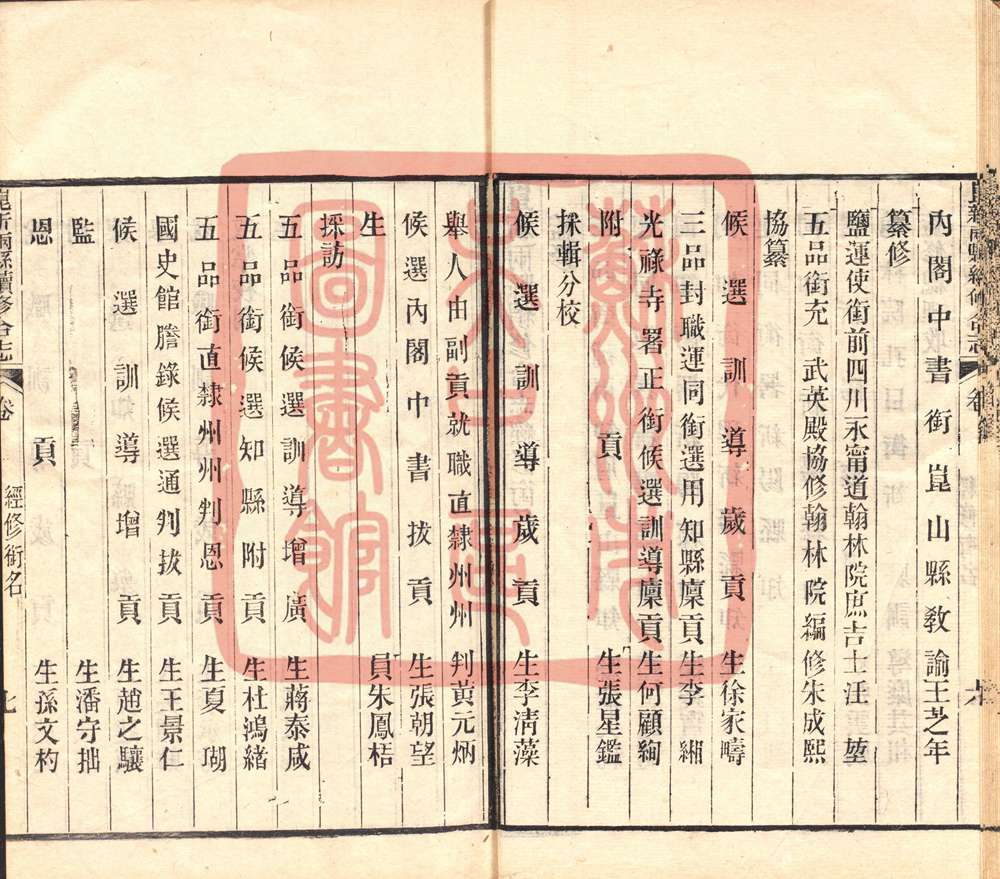 內閣中書銜崑山縣教諭王芝年
纂修
鹽運使銜前四川永甯道翰林院庶吉士汪堃
五品銜充武英殿協修翰林院編修朱成熙
協纂
候選訓導歲貢生徐家疇
三品封職運同銜選用知縣廩貢生李緗
光祿寺署正銜候選訓導廩貢生何顧絢
附貢生張星鑑
採輯分校
候選訓導歲貢生李清藻
舉人由副貢就職直隸州州判黃元炳
候選內閣中書拔貢生張朝望
生員朱鳳梧
採訪
五品銜候選訓導增廣生蔣泰咸
五品銜候選知縣附貢生杜鴻緒
五品銜直隸州州判恩貢生夏瑚
國史館謄錄候選通判拔貢生王景仁
候選訓導增貢生趙之驤
監生潘守拙
恩貢生孫文杓
崑新兩縣續修合志
卷
經修銜名
七